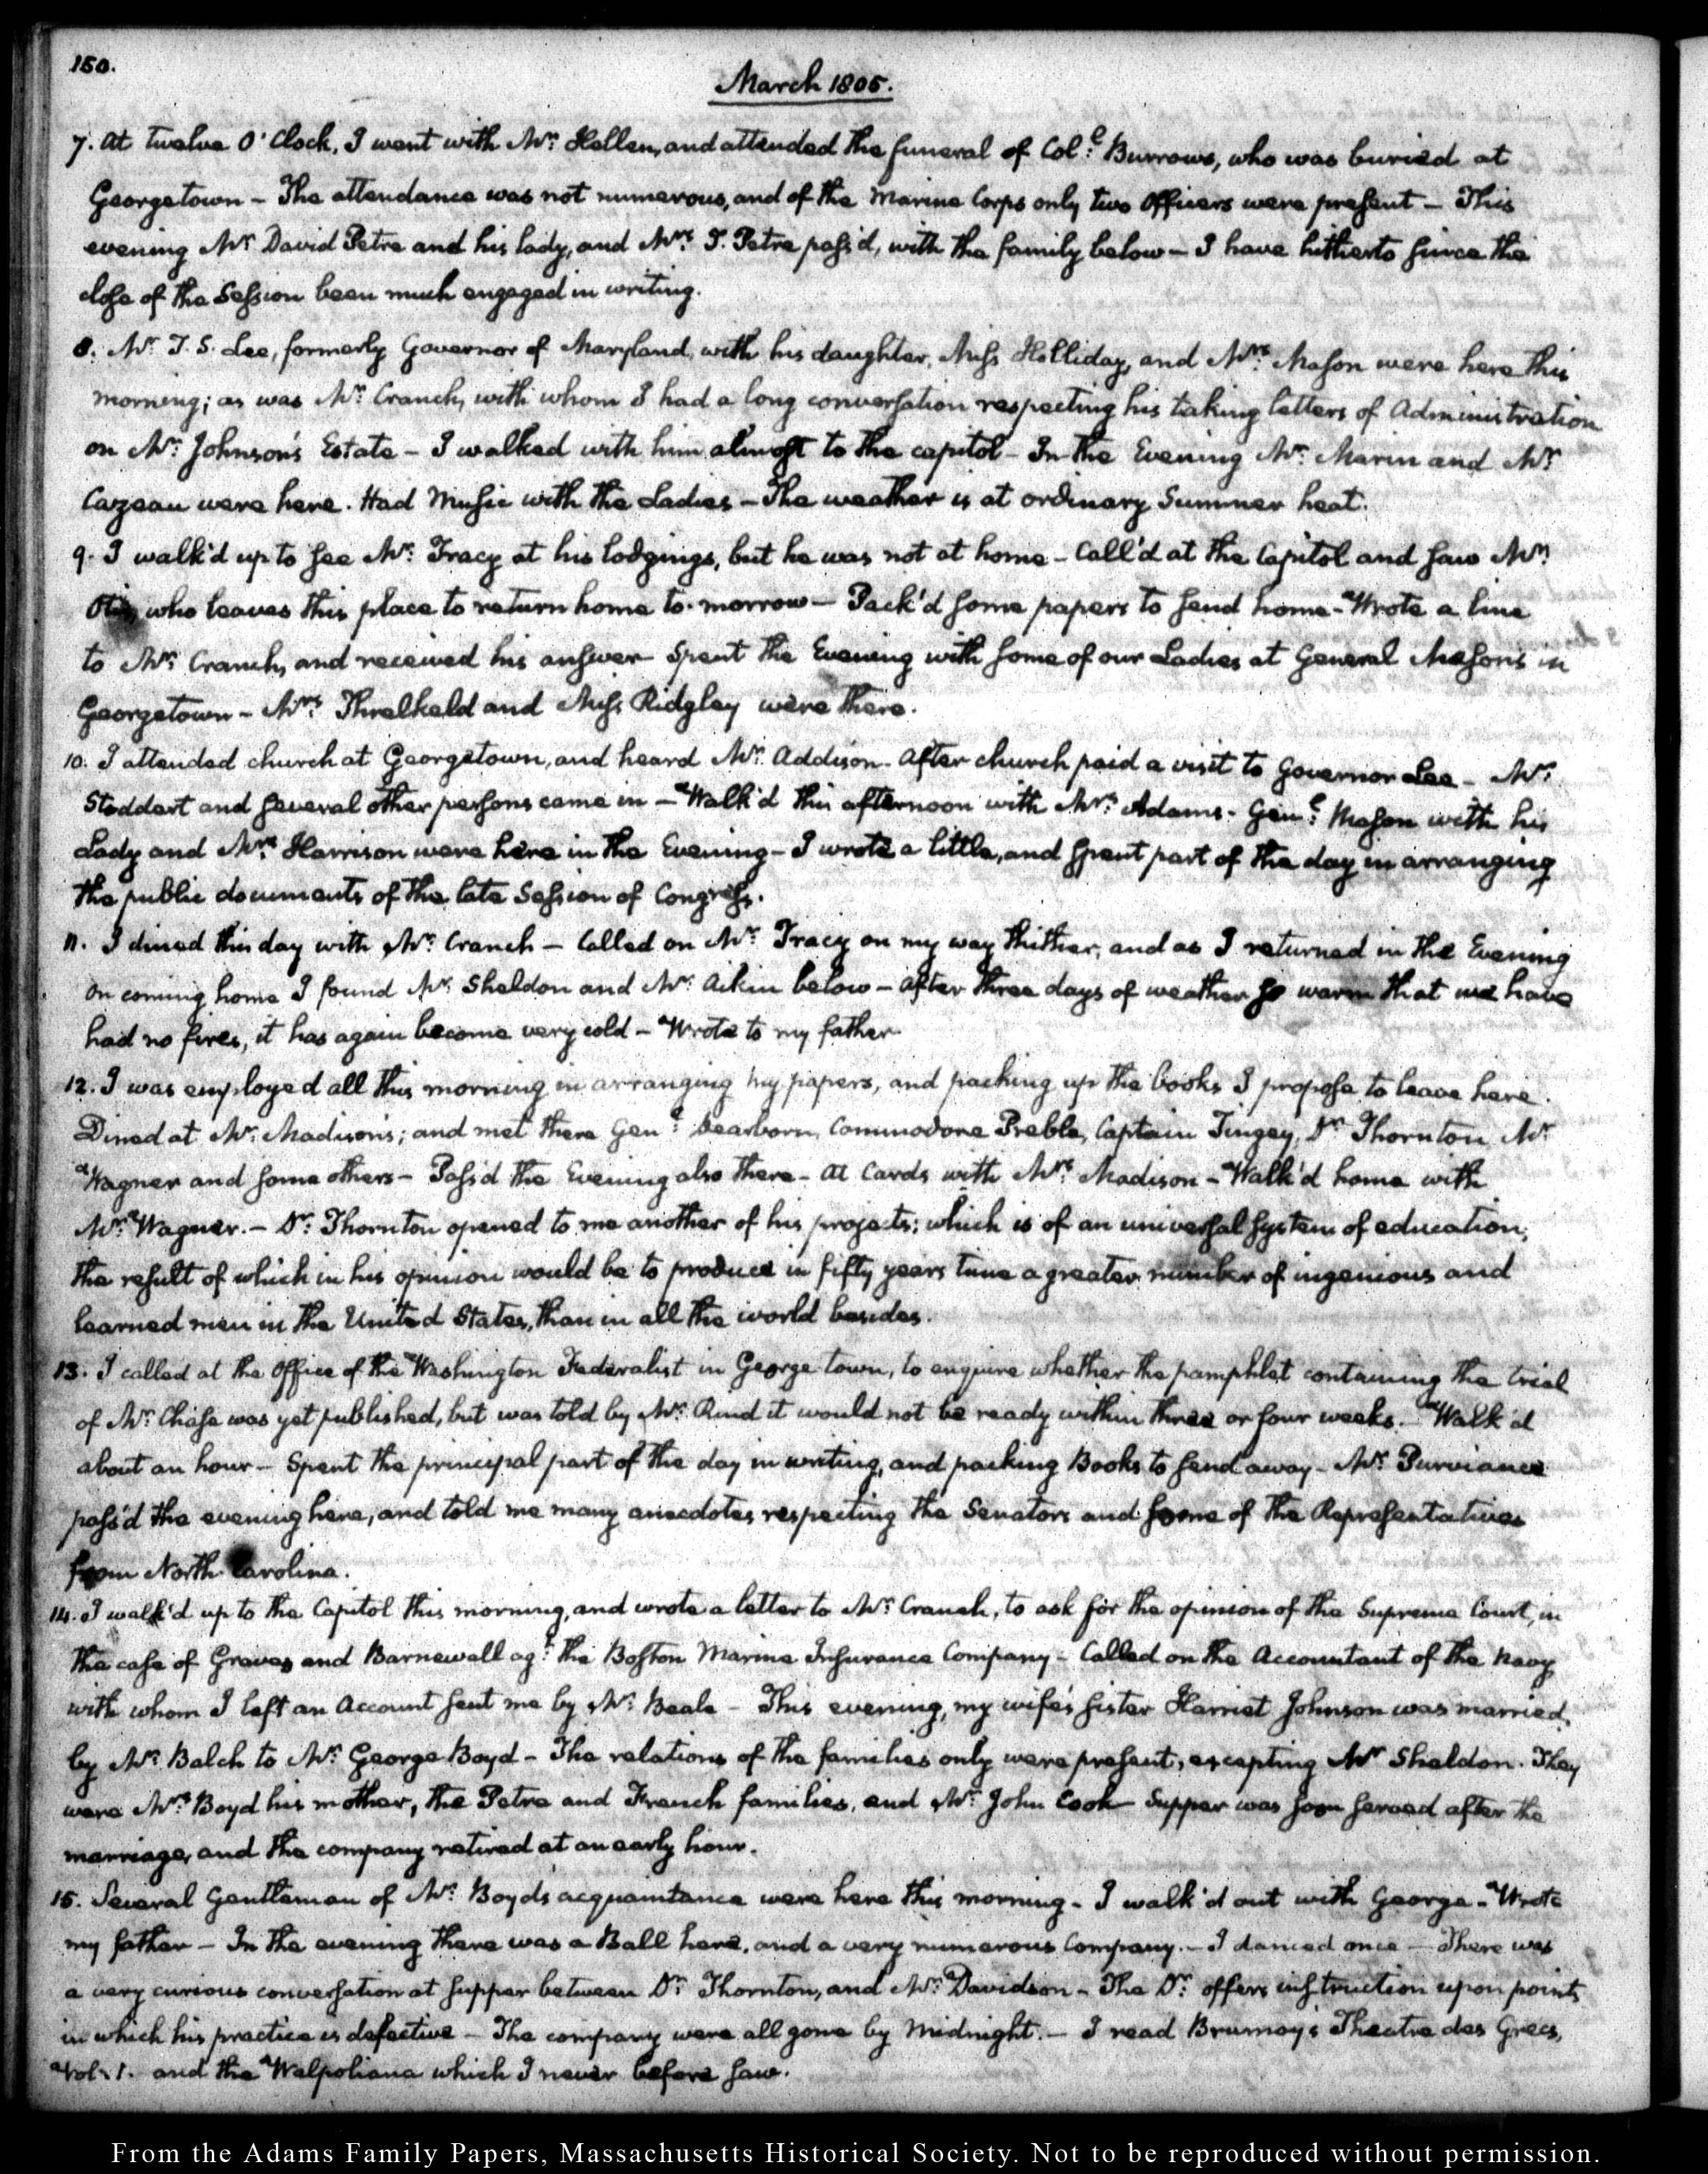 150.
March 1805.
7. At twelve O'Clock, I went with Mr: Hellen, and attended the funeral of Coll: Burrows, who was buried at
Georgetown — The attendance was not numerous, and of the Marine Corps only two Officers were present — This
evening Mr David Petre and his lady, and Mrs: T. Petre pass'd, with the family below — I have hitherto since the
close of the Session been much engaged in writing.
8. Mr: T. S. Lee, formerly Governor of Maryland, with his daughter, Miss Holliday, and Mrs: Mason were here this
morning; as was Mr: Cranch, with whom I had a long conversation respecting his taking letters of Administration
on Mr: Johnson's Estate — I walked with him almost to the capitol — In the Evening Mr: Marin and Mr
Cazeau were here. Had Music with the Ladies — The weather is at ordinary Summer heat.
9. I walk'd up to see Mr: Tracy at his lodgings, but he was not at home — Call'd at the Capitol and saw Mr:
Otis, who leaves this place to return home to-morrow — Pack'd some papers to send home — Wrote a line
to Mr: Cranch, and received his answer — Spent the Evening with some of our Ladies at General Mason's in
Georgetown — Mrs: Threlkeld and Miss Ridgley were there.
10. I attended church at Georgetown, and heard Mr: Addison — After church paid a visit to Governor Lee — Mr:
Stoddert and several other persons came in — Walk'd this afternoon with Mrs: Adams — Genl: Mason with his
Lady and Mrs: Harrison were here in the Evening — I wrote a little, and spent part of the day in arranging
the public documents of the late Session of Congress.
11. I dined this day with Mr: Cranch — Called on Mr: Tracy on my way thither, and as I returned in the Evening
on coming home I found Mr: Sheldon and Mr: Aikin below — After three days of weather so warm that we have
had no fires, it has again become very cold — Wrote to my father
12. I was employed all this morning in arranging my papers, and packing up the books I propose to leave here.
Dined at Mr: Madison's; and met there Genl: Dearborn, Commodore Preble, Captain Tingey, Dr: Thornton, Mr:
Wagner and some others — Pass'd the Evening also there — At Cards with Mrs: Madison — Walk'd home with
Mr: Wagner. — Dr: Thornton opened to me another of his projects; which is of an universal system of education;
the result of which in his opinion would be to produce in fifty years time a greater number of ingenious and
learned men in the United States, than in all the world besides.
13. I called at the Office of the Washington Federalist in George town, to enquire whether the pamphlet containing the trial
of Mr: Chase was yet published, but was told by Mr: Rind it would not be ready within three or four weeks. Walk'd
about an hour — Spent the principal part of the day in writing, and packing Books to send away — Mr: Purviance
pass'd the evening here, and told me many anecdotes respecting the Senators and some of the Representatives
from North Carolina.
14. I walk'd up to the Capitol this morning, and wrote a letter to Mr: Cranch, to ask for the opinion of the Supreme Court, in
the case of Graves and Barnewall agt: the Boston Marine Insurance Company — Called on the Accountant of the Navy
with whom I left an Account sent me by Mr: Beale — This evening, my wife's sister Harriet Johnson was married,
by Mr: Balch to Mr: George Boyd — The relations of the families only were present, excepting Mr Sheldon. They
were Mrs: Boyd his mother, the Petre and French families, and Mr: John Cook — Supper was soon served after the
marriage, and the company retired at an early hour.
15. Several Gentlemen of Mr: Boyds acquaintance were here this morning — I walk'd out with George — Wrote
my father — In the evening there was a Ball here, and a very numerous Company. — I danced once — There was
a very curious conversation at supper between Dr: Thornton, and Mr: Davidson — The Dr: offers instruction upon points
in which his practice is defective — The company were all gone by Midnight. — I read Brumoy's Theatre des Grecs,
Vol: 1. and the Walpoliana which I never before saw.
From the Adams Family Papers, Massachusetts Historical Society. Not to be reproduced without permission.